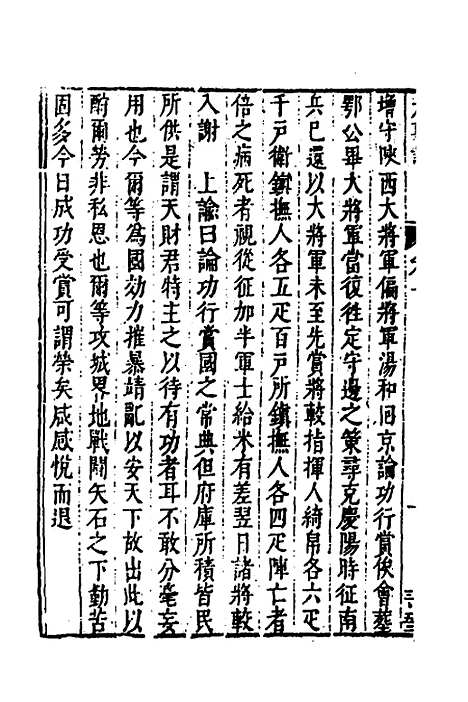 增守陝西大將軍偏將軍湯和囘京論功行賞俟會塟
鄂公畢大將軍當復徃定守邊之策尋克慶陽時征南
兵巳還以大將軍未至先賞將較指揮人綺帛各六疋
千戸衛鎮撫人各五疋百戸所鎮撫人各四疋陣亡者
倍之病死者視從征加半軍士給米有差翌日諸將較
入謝　上諭曰論功行賞國之常典但府庫所積皆民
所供是謂天財君特主之以待有功者耳不敢分毫妄
用也今爾等為國効力摧暴靖亂以安天下故出此以
酧爾勞非私恩也爾等攻城畧地戰鬭矢石之下勤苦
固多今日成功受賞可謂榮矣咸感悅而退